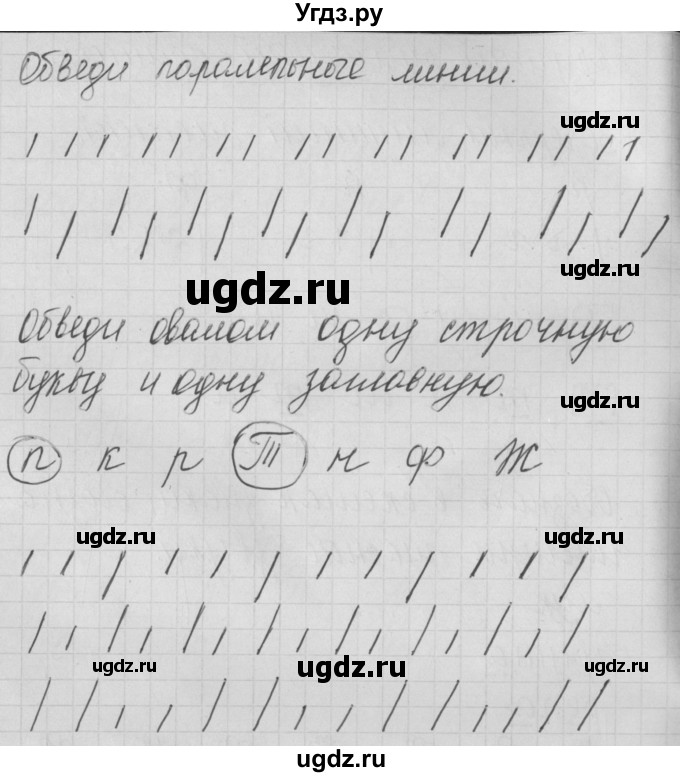 Угдз.ру
Обведи паралельные линии.
ugdz.ru
ugdz.ru
ugdz.ru
Обведи овалом одну строчную
букву и одну заглавную.
ugdz.ru
п к р Т н ф Ж
ugdz.ru ugdz.ru
ugdz.ru ugdz.ru ugdz.ru
ugdz.ru